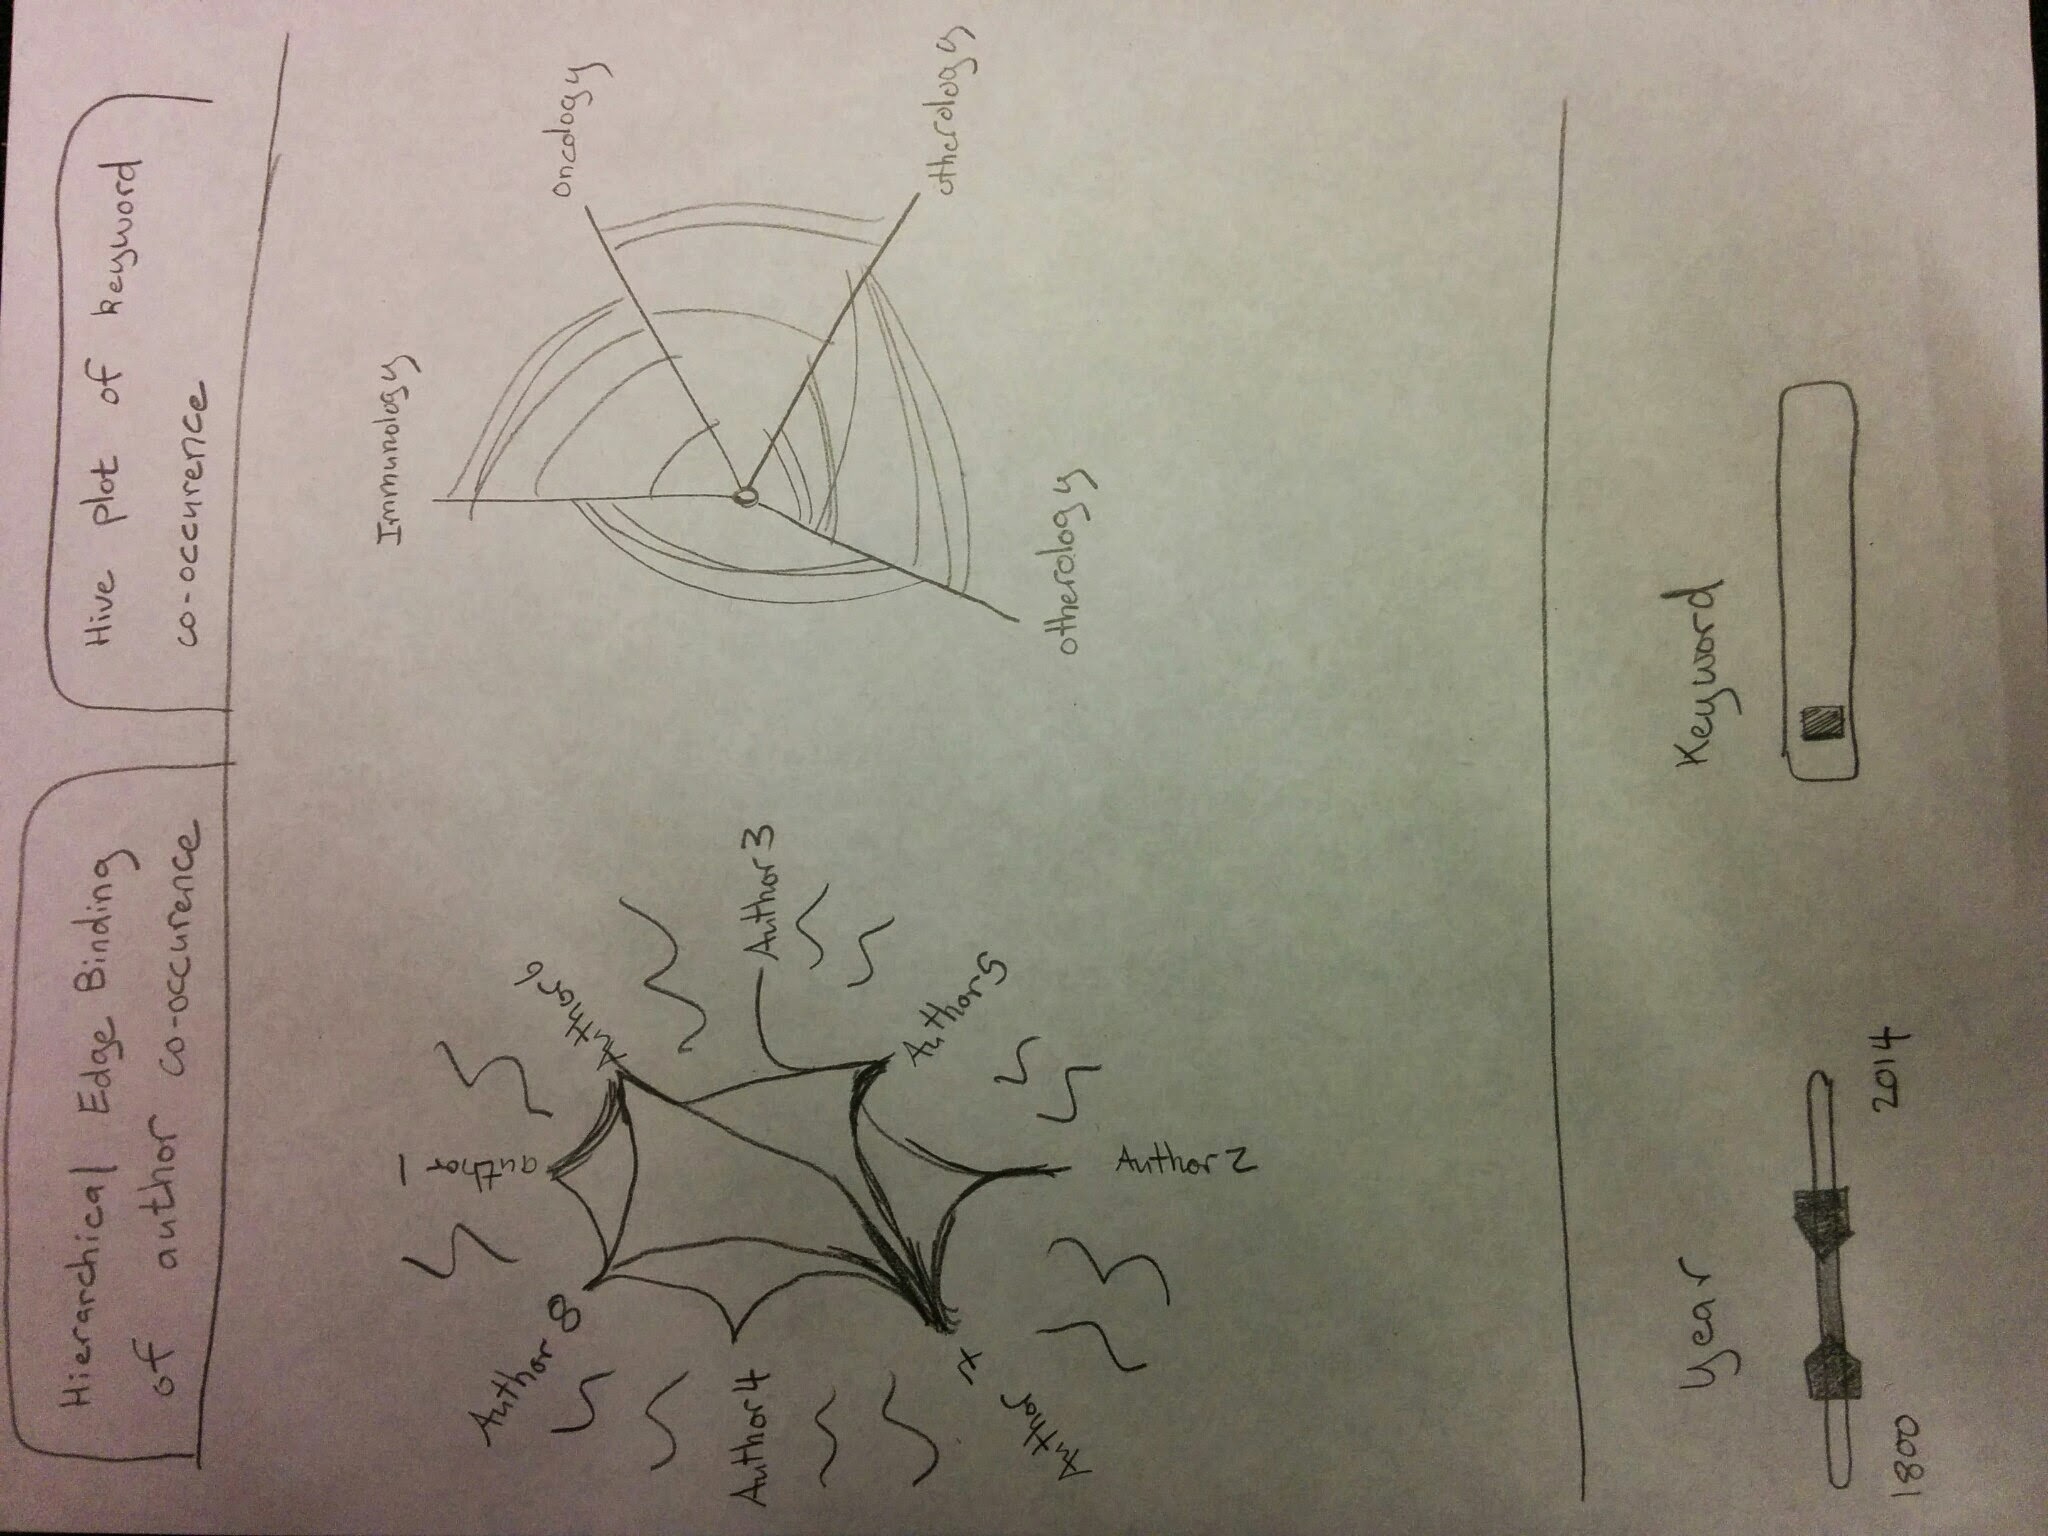 Hierarchical Edge Binding
of author co-occurence
Hive plot of keyword
co-occurence
author 1
Author 6
Author 8
Author 3
Author 4
Author 5
Author x
Author 2
Immunology
oncology
otherology
otherology
Year
1800
2014
Keyword